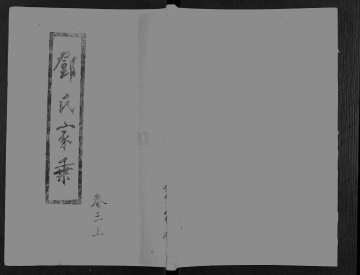 鄧氏家乘
卷三上